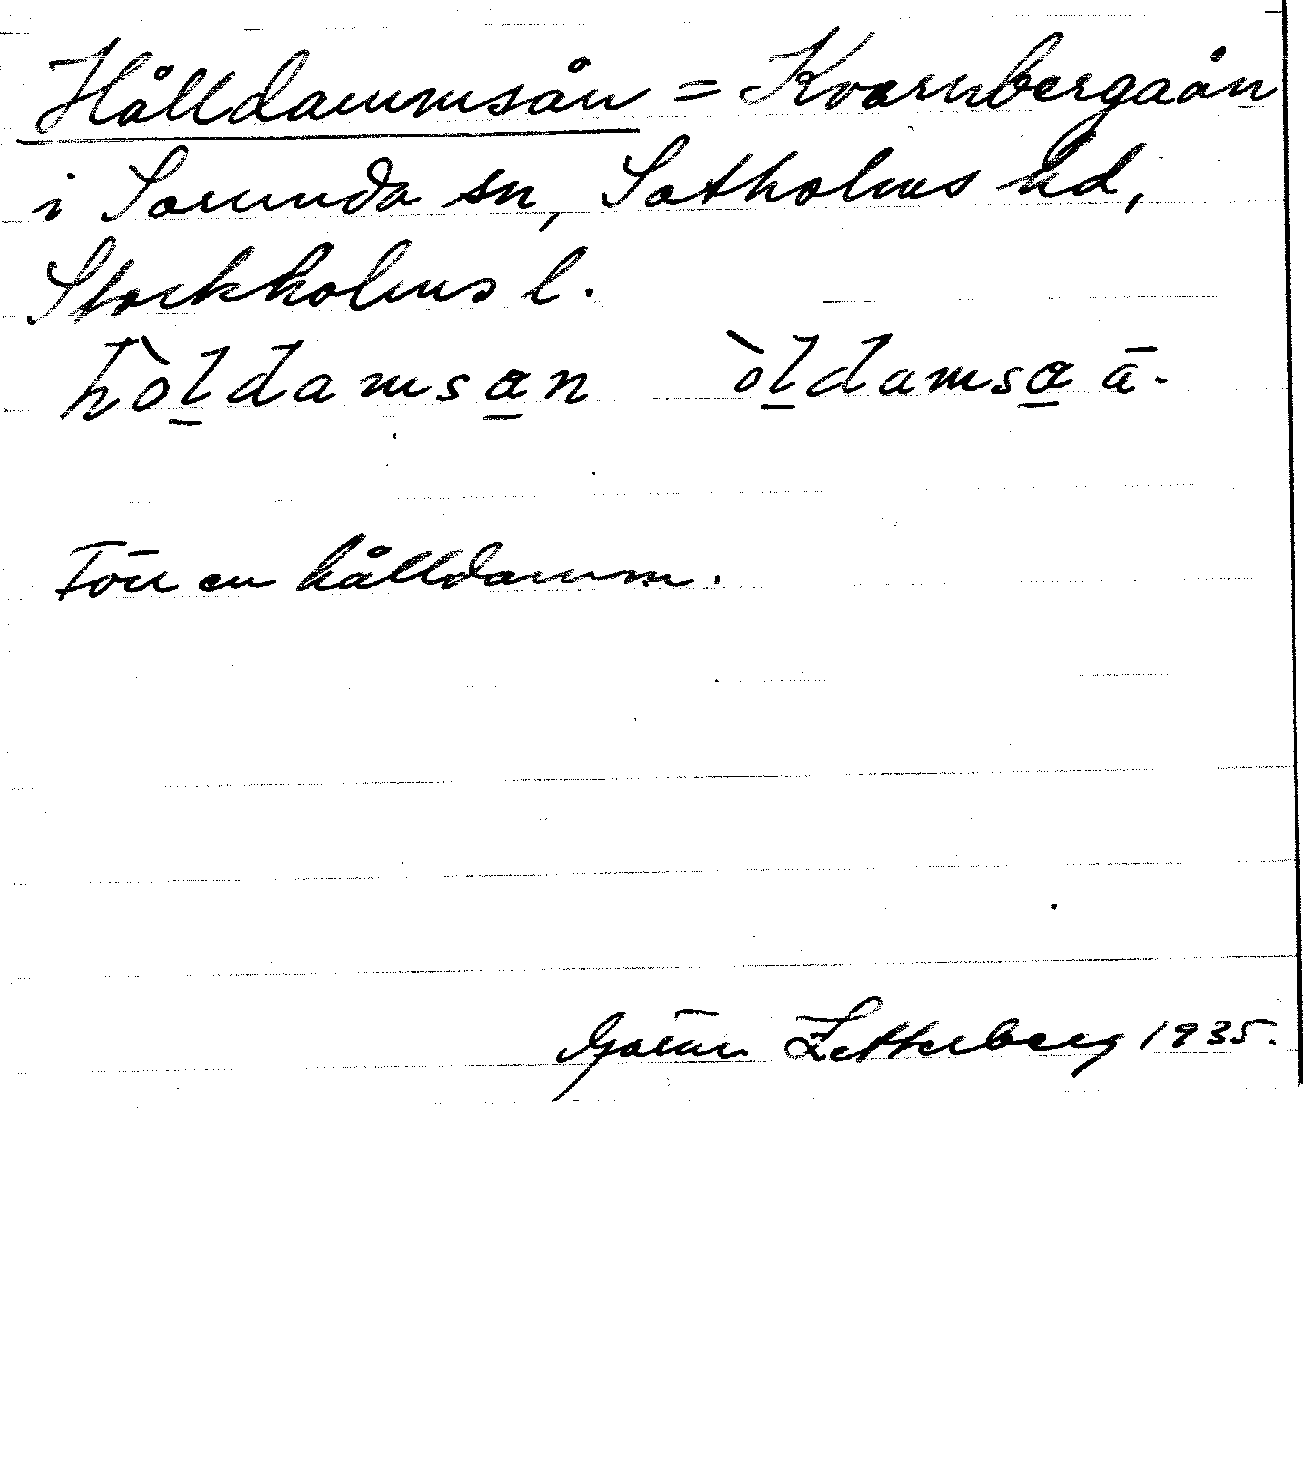 Hålldammsån = Kvarnbergaån
i Sorunda sn, Sotholms hd,
Stockholms l.
hòl̲damsa̲n òl̲damsa̲ ā-
Förr en hålldamm.
Göran Zetterberg 1935.